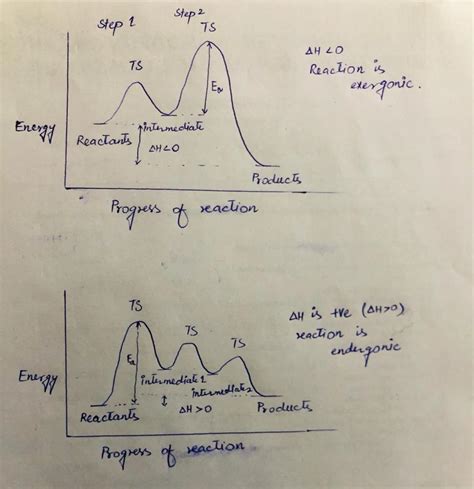 Step 1
Step 2
TS
TS
ΔH<0
Reaction is
exergonic.
Ea
Energy
Reactants
intermediate
ΔH<0
Products
Progress of reaction
TS
TS
TS
ΔH is +ve (ΔH>0)
reaction is
endergonic
Ea
Energy
intermediate 1
intermediate 2
ΔH>0
Reactants
Products
Progress of reaction